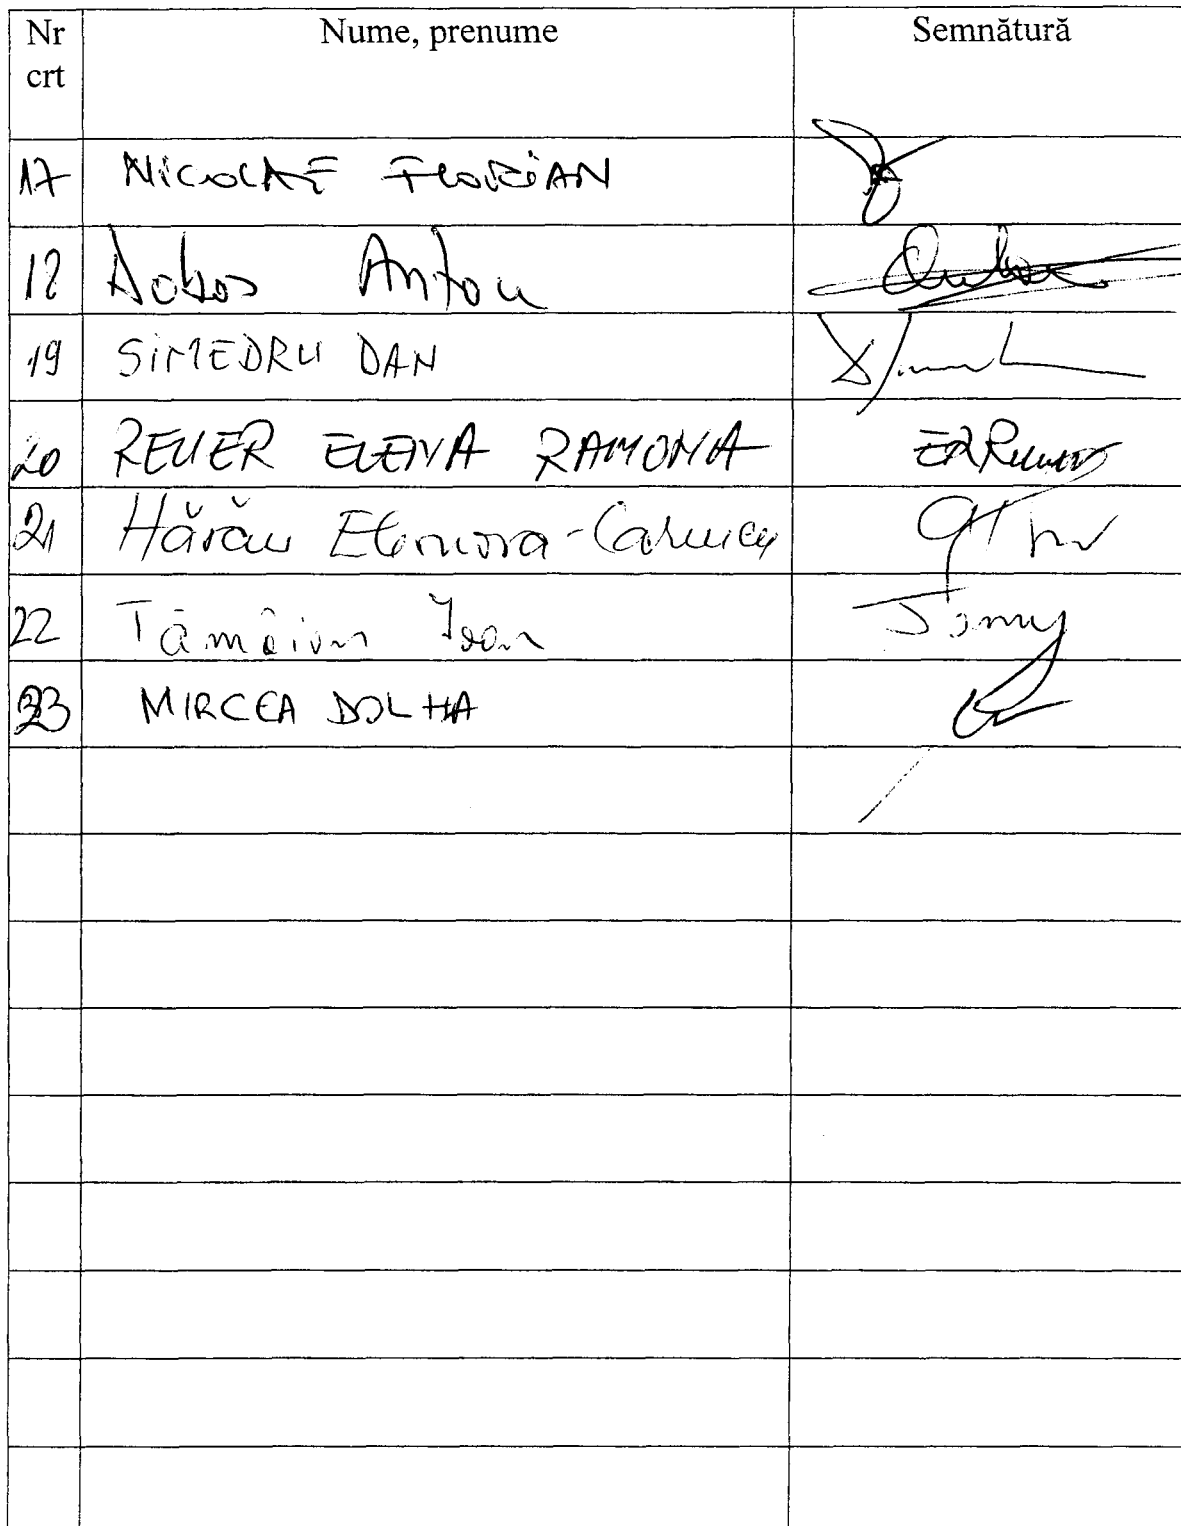 Nr crt Nume, prenume Semnătură
17 NICOLAE FLORIAN
18 Dobos Anton
19 SIMEDRU DAN
20 ELENA RAMONA
21 Hărău Eleonora-Carmica
22 Tămâian Ioan
23 MIRCEA DOLHA